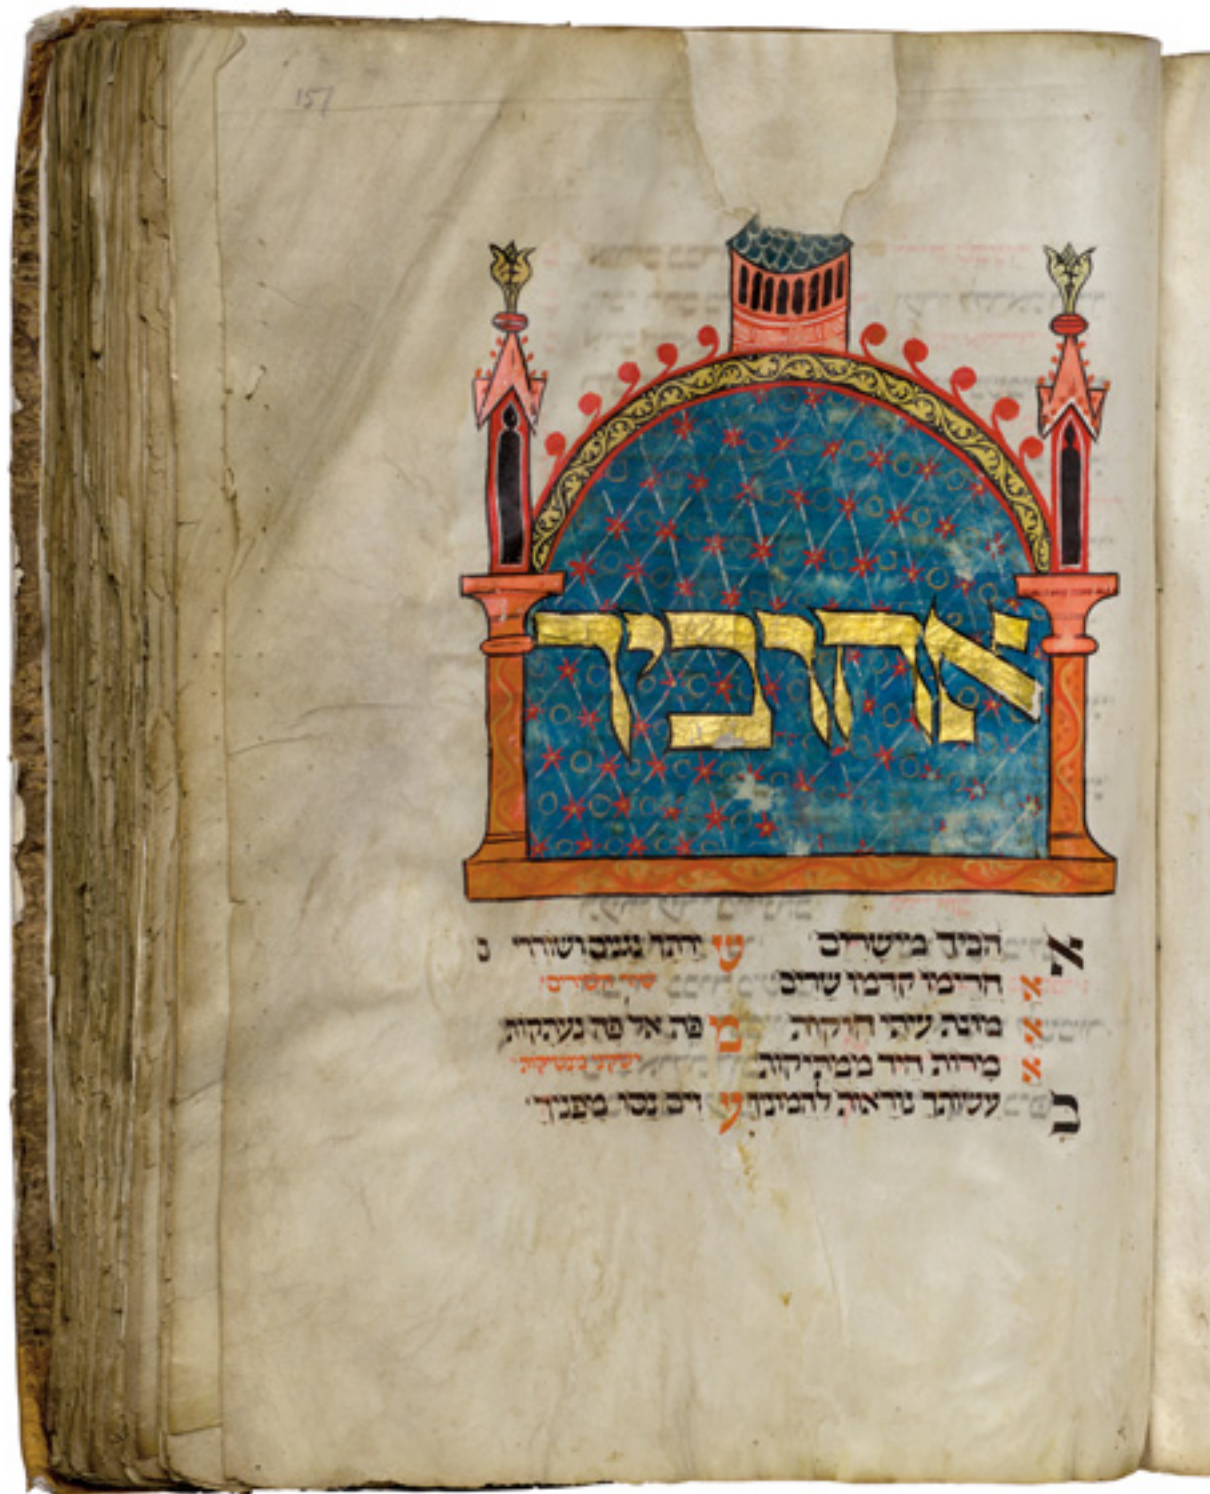 157
אהוביך
אהביך מישרים שירתה נגנים ושוררי
אהרימו קדמו שרים שיר השירים
אמונת עיתי חוקות מפה אל פה נעתקות
אמרות היד ממתיקות ישקני מנשיקות
בעשותך נוראות להמוניך עוים נסו מפניך